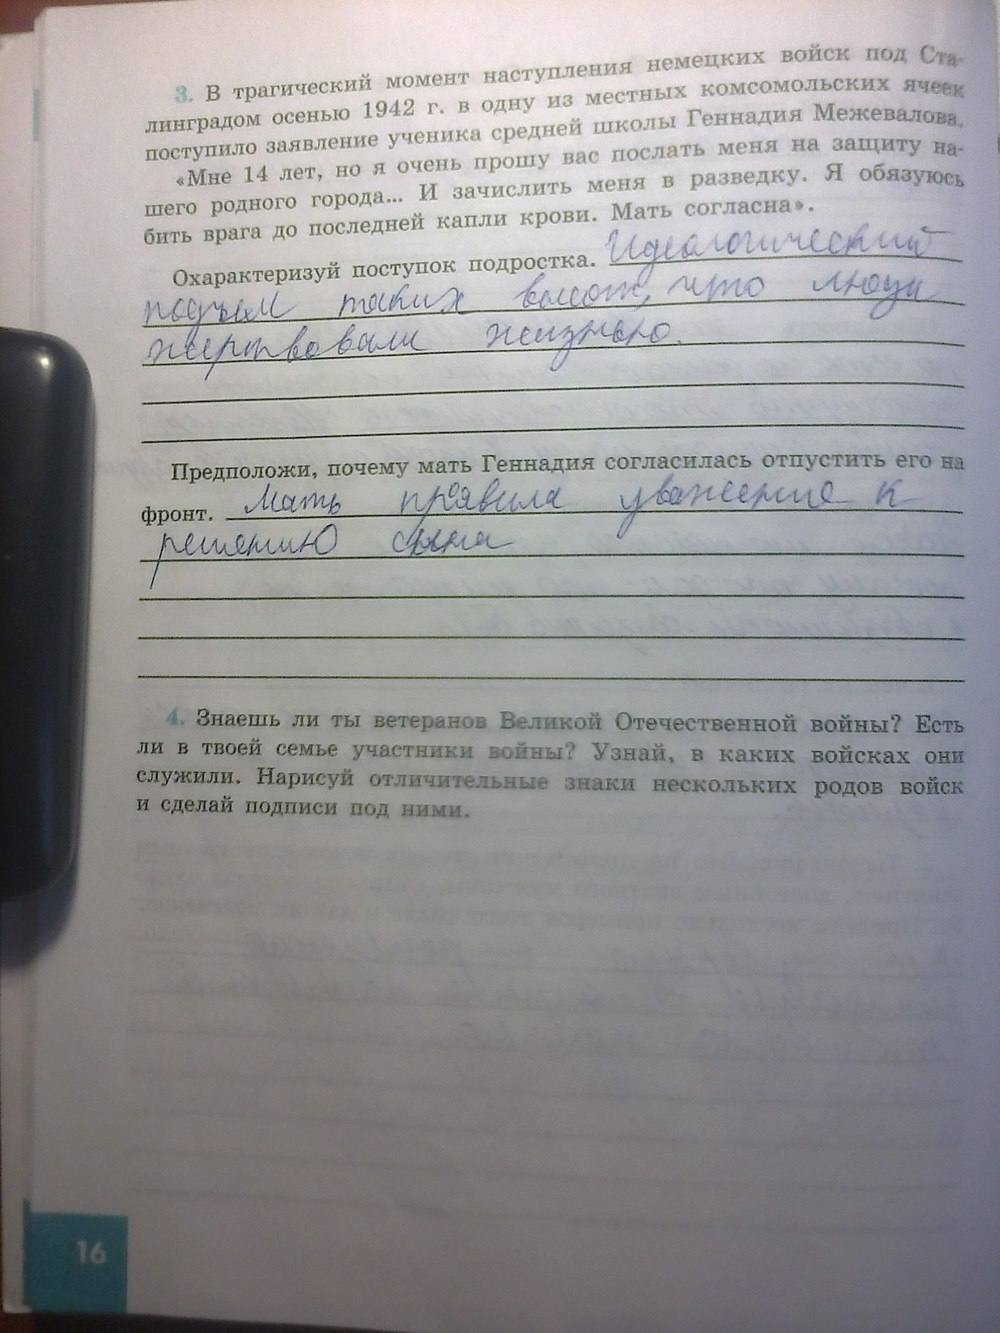 3. В трагический момент наступления немецких войск под Ста-
линградом осенью 1942 г. в одну из местных комсомольских ячеек
поступило заявление ученика средней школы Геннадия Межевалова.
«Мне 14 лет, но я очень прошу вас послать меня на защиту на-
шего родного города... И зачислить меня в разведку. Я обязуюсь
бить врага до последней капли крови. Мать согласна».
Охарактеризуй поступок подростка. Идеологический
подъём таких высот, что люди
жертвовали жизнью.
Предположи, почему мать Геннадия согласилась отпустить его на
фронт. Мать проявила уважение к
решению сына
4. Знаешь ли ты ветеранов Великой Отечественной войны? Есть
ли в твоей семье участники войны? Узнай, в каких войсках они
служили. Нарисуй отличительные знаки нескольких родов войск
и сделай подписи под ними.
16